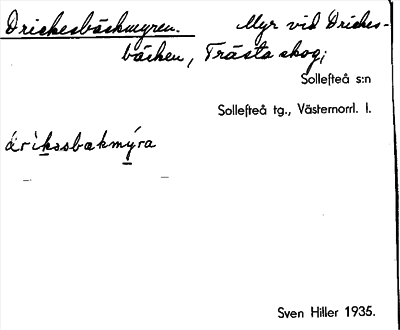 Driskesbäckmyren. Myr vid Driskes-
bäcken, Trästa skog;
Sollefteå s:n
Sollefteå tg., Västernorrl. l.
drìkssbakmýra
Sven Hiller 1935.